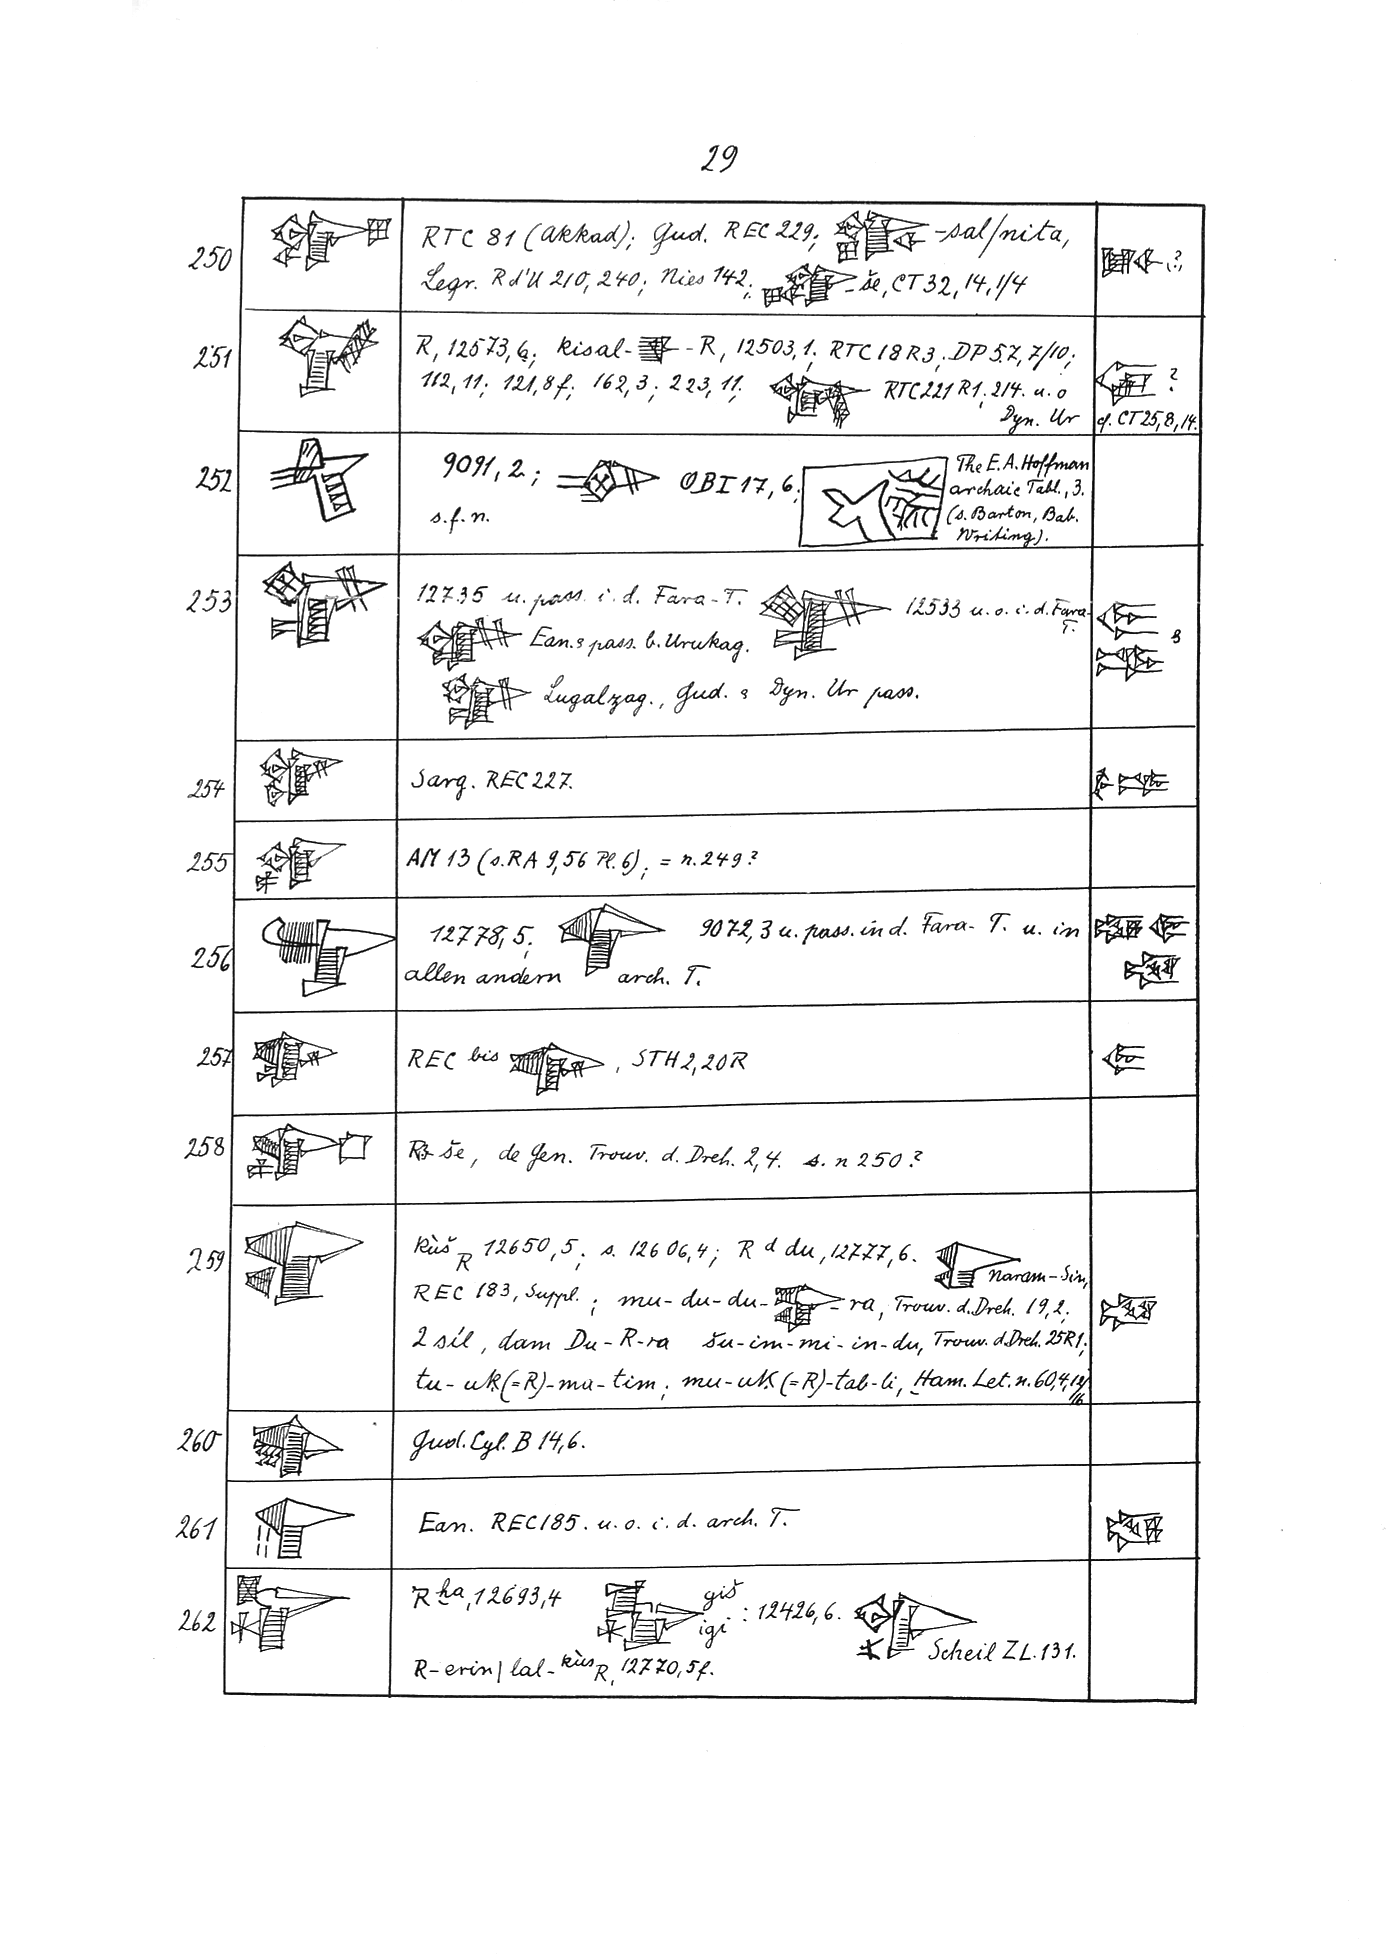 29
250 RTC 81 (Akkad); Gud. REC 229; -sal/nita, ?
Legr. R d'U 210, 240; Nies 142; -še, CT 32, 14, 1/4
251 R, 12573, 6; kisal- -R, 12503, 1. RTC 18 R3; DP 57, 7/10;
112, 11; 121, 8 f; 162, 3; 223, 11; RTC 221 R1; 214. u. o ?
Dyn. Ur cf. CT 25, 8, 14.
252 9091, 2; OBI 17, 6; The E. A. Hoffman
archaic Tabl., 3.
s. f. n. (s. Barton, Bab.
Writing).
253 12735 u. pass. i. d. Fara-T. 12533 u. o. i. d. Fara-
T.
Ean. & pass. b. Urukag. &
Lugalzag., Gud. & Dyn. Ur pass.
254 Sarg. REC 227.
255 AM 13 (s. RA 9, 56 Pl. 6); = n. 249?
256 12778, 5; 9072, 3 u. pass. in d. Fara-T. u. in
allen andern arch. T.
257 REC bis , STH 2, 20 R
258 R-še, de Gen. Trouv. d. Dreh. 2, 4. s. n 250?
259 kùš R 12650, 5; s. 12606, 4; R d du, 12777, 6. Naram-Sin,
REC 183, Suppl.; mu-du-du- -ra, Trouv. d. Dreh. 19, 2;
2 sil, dam Du-R-ra šu-im-mi-in-du, Trouv. d. Dreh. 25 R1;
tu-uk(=R)-ma-tim; mu-uk(=R)-tab-li, Ham. Let. n. 60, 4, 12/16
260 Gud. Cyl. B 14, 6.
261 Ean. REC 185. u. o. i. d. arch. T.
262 R ha, 12693, 4 giš
igi : 12426, 6. Scheil ZL. 131.
R-erin/lal-kùš R, 12770, 5 f.